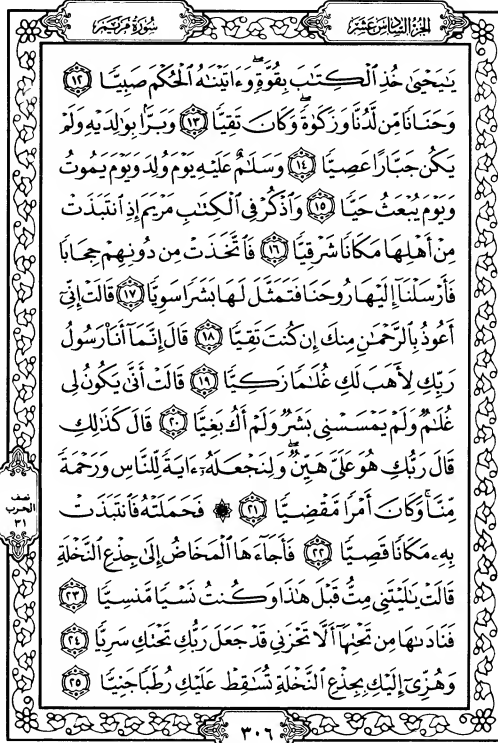 سورة مريم
الجزء السادس عشر
يَٰيَحْيَىٰ خُذِ ٱلْكِتَٰبَ بِقُوَّةٍۖ وَءَاتَيْنَٰهُ ٱلْحُكْمَ صَبِيًّا ١٢
وَحَنَانًا مِّن لَّدُنَّا وَزَكَوٰةًۖ وَكَانَ تَقِيًّا ١٣ وَبَرًّۢا بِوَٰلِدَيْهِ وَلَمْ
يَكُن جَبَّارًا عَصِيًّا ١٤ وَسَلَٰمٌ عَلَيْهِ يَوْمَ وُلِدَ وَيَوْمَ يَمُوتُ
وَيَوْمَ يُبْعَثُ حَيًّا ١٥ وَٱذْكُرْ فِى ٱلْكِتَٰبِ مَرْيَمَ إِذِ ٱنتَبَذَتْ
مِنْ أَهْلِهَا مَكَانًا شَرْقِيًّا ١٦ فَٱتَّخَذَتْ مِن دُونِهِمْ حِجَابًا
فَأَرْسَلْنَآ إِلَيْهَا رُوحَنَا فَتَمَثَّلَ لَهَا بَشَرًا سَوِيًّا ١٧ قَالَتْ إِنِّىٓ
أَعُوذُ بِٱلرَّحْمَٰنِ مِنكَ إِن كُنتَ تَقِيًّا ١٨ قَالَ إِنَّمَآ أَنَا۠ رَسُولُ
رَبِّكِ لِأَهَبَ لَكِ غُلَٰمًا زَكِيًّا ١٩ قَالَتْ أَنَّىٰ يَكُونُ لِى
غُلَٰمٌ وَلَمْ يَمْسَسْنِى بَشَرٌ وَلَمْ أَكُ بَغِيًّا ٢٠ قَالَ كَذَٰلِكِ
قَالَ رَبُّكِ هُوَ عَلَىَّ هَيِّنٌۖ وَلِنَجْعَلَهُۥٓ ءَايَةً لِّلنَّاسِ وَرَحْمَةً
مِّنَّاۚ وَكَانَ أَمْرًا مَّقْضِيًّا ٢١ ۞ فَحَمَلَتْهُ فَٱنتَبَذَتْ
بِهِۦ مَكَانًا قَصِيًّا ٢٢ فَأَجَآءَهَا ٱلْمَخَاضُ إِلَىٰ جِذْعِ ٱلنَّخْلَةِ
قَالَتْ يَٰلَيْتَنِى مِتُّ قَبْلَ هَٰذَا وَكُنتُ نَسْيًا مَّنسِيًّا ٢٣
فَنَادَىٰهَا مِن تَحْتِهَآ أَلَّا تَحْزَنِى قَدْ جَعَلَ رَبُّكِ تَحْتَكِ سَرِيًّا ٢٤
وَهُزِّىٓ إِلَيْكِ بِجِذْعِ ٱلنَّخْلَةِ تُسَٰقِطْ عَلَيْكِ رُطَبًا جَنِيًّا ٢٥
نصف
الحزب
٣١
٣٠٦